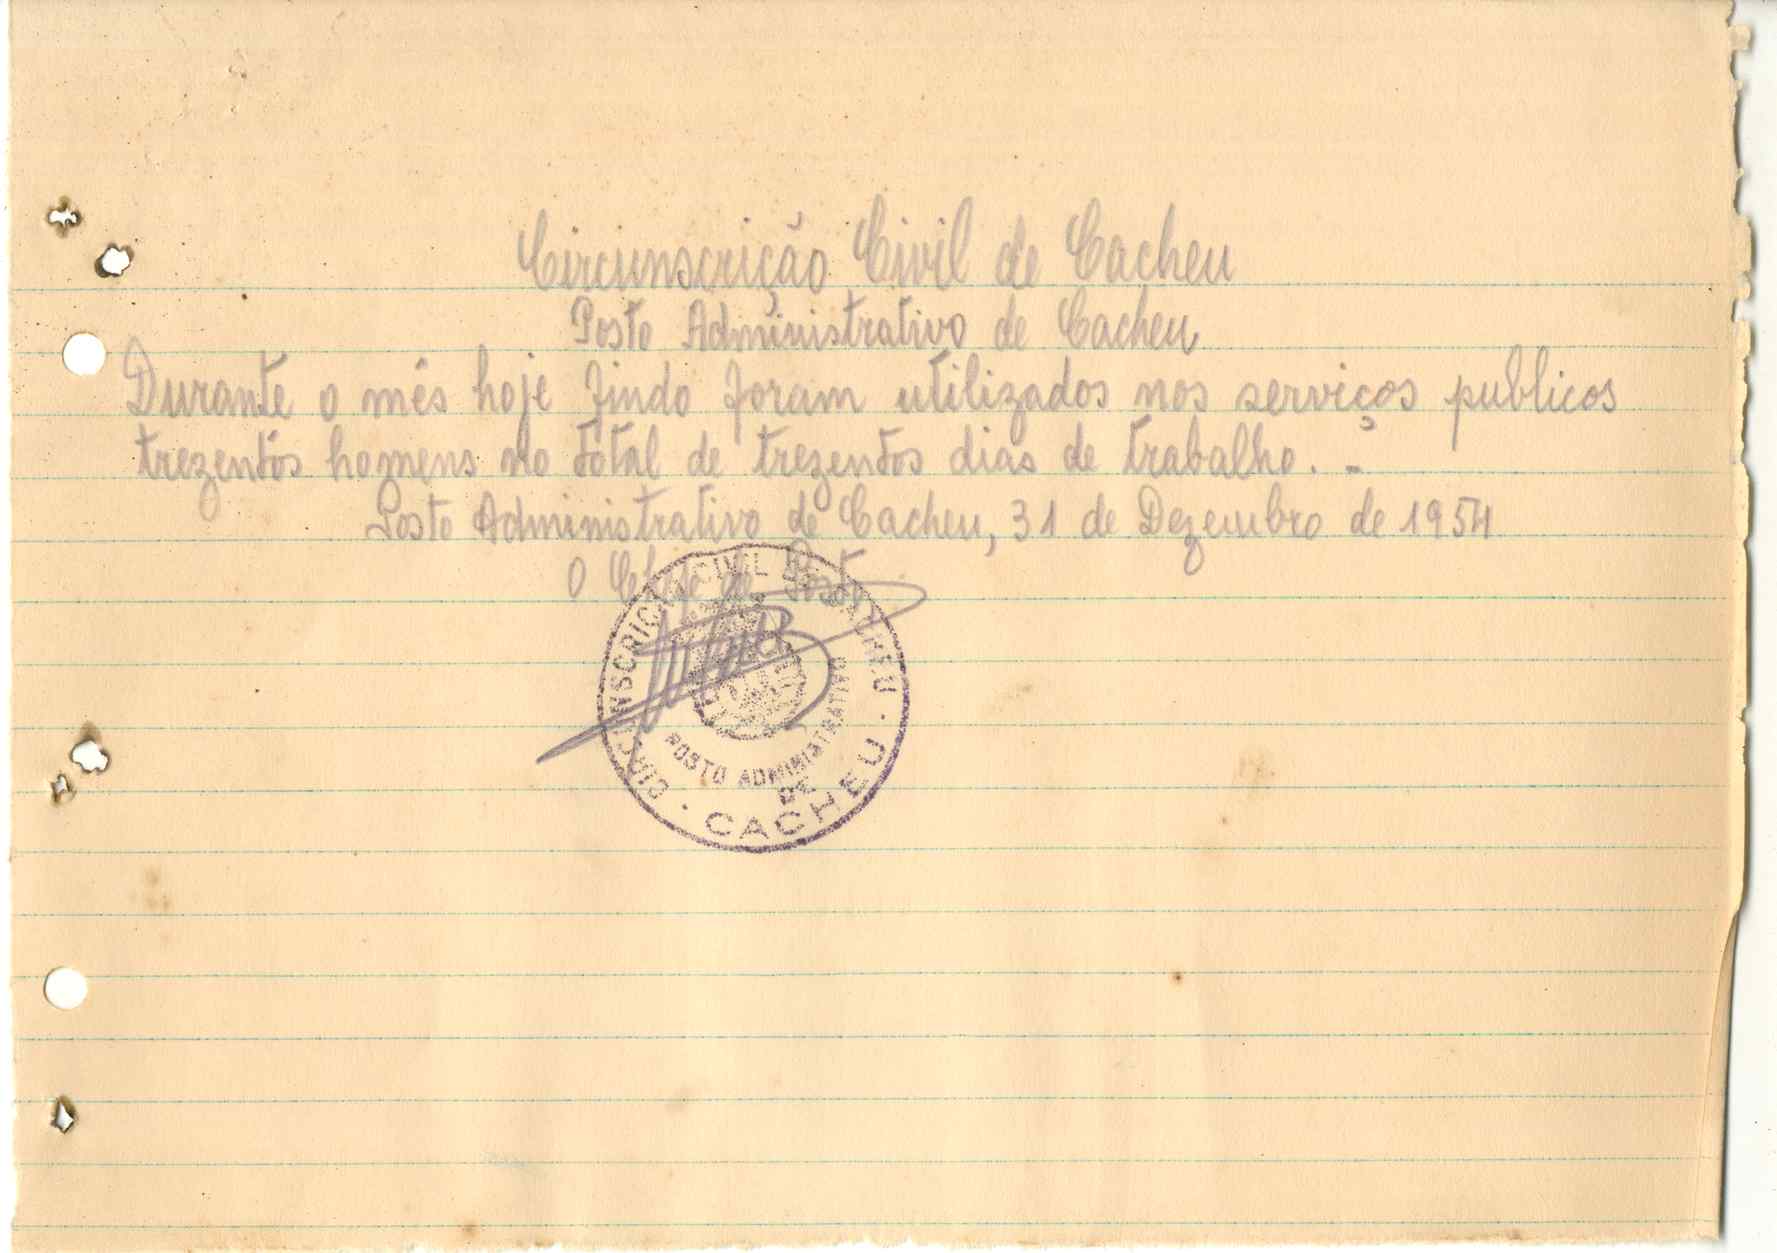 Circunscrição Civil de Cacheu
Posto Administrativo de Cacheu
Durante o mês hoje findo foram utilizados nos serviços publicos
trezentos homens no total de trezentos dias de trabalho. -
Posto Administrativo de Cacheu, 31 de Dezembro de 1954
O Chefe de Posto
CIRCUNSCRIÇÃO CIVIL DE CACHEU
POSTO ADMINISTRATIVO
DE
CACHEU